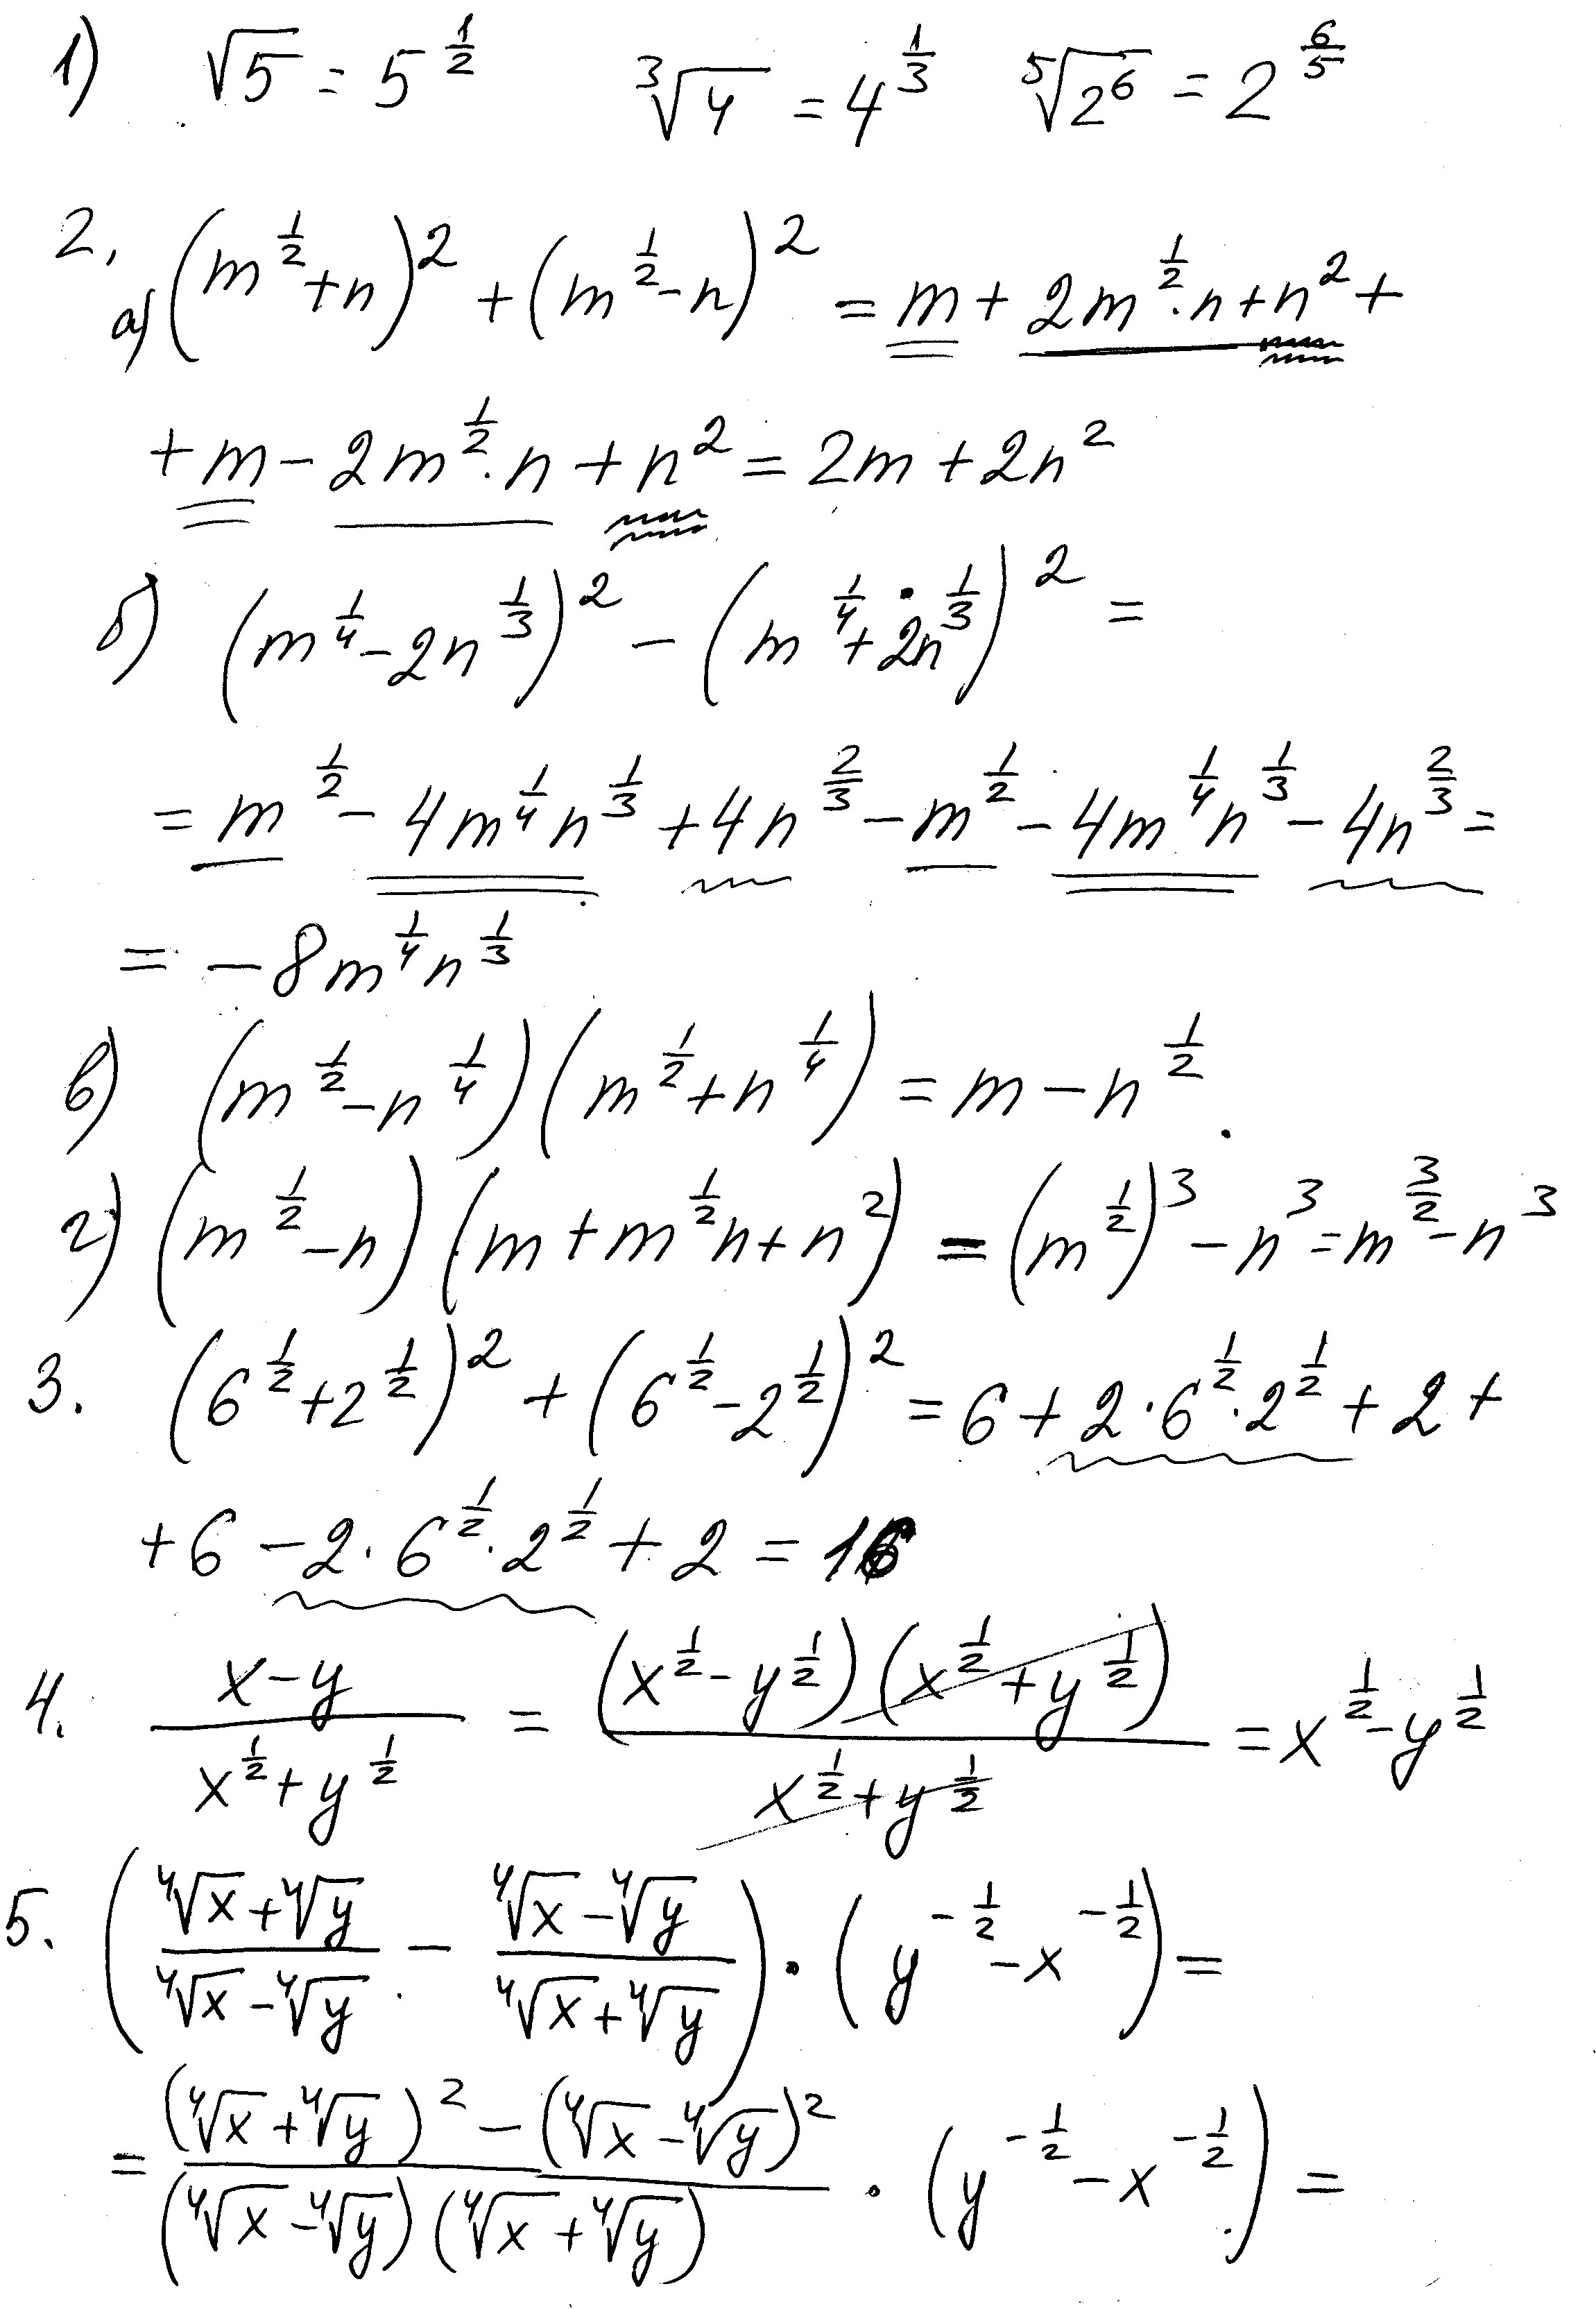 1) √5 = 5^(1/2) ∛4 = 4^(1/3) ⁵√(2^6) = 2^(6/5)
2. а) (m^(1/2) + n)^2 + (m^(1/2) - n)^2 = m + 2m^(1/2)·n + n^2 +
+ m - 2m^(1/2)·n + n^2 = 2m + 2n^2
б) (m^(1/4) - 2n^(1/3))^2 - (m^(1/4) + 2n^(1/3))^2 =
= m^(1/2) - 4m^(1/4)n^(1/3) + 4n^(2/3) - m^(1/2) - 4m^(1/4)n^(1/3) - 4n^(2/3) =
= -8m^(1/4)n^(1/3)
в) (m^(1/2) - n^(1/4))(m^(1/2) + n^(1/4)) = m - n^(1/2).
г) (m^(1/2) - n)(m + m^(1/2)n + n^2) = (m^(1/2))^3 - n^3 = m^(3/2) - n^3
3. (6^(1/2) + 2^(1/2))^2 + (6^(1/2) - 2^(1/2))^2 = 6 + 2·6^(1/2)·2^(1/2) + 2 +
+ 6 - 2·6^(1/2)·2^(1/2) + 2 = 16
4. (x - y)/(x^(1/2) + y^(1/2)) = ((x^(1/2) - y^(1/2))(x^(1/2) + y^(1/2)))/(x^(1/2) + y^(1/2)) = x^(1/2) - y^(1/2)
5. ((⁴√x + ⁴√y)/(⁴√x - ⁴√y) - (⁴√x - ⁴√y)/(⁴√x + ⁴√y)) · (y^(-1/2) - x^(-1/2)) =
= ((⁴√x + ⁴√y)^2 - (⁴√x - ⁴√y)^2)/((⁴√x - ⁴√y)(⁴√x + ⁴√y)) · (y^(-1/2) - x^(-1/2)) =